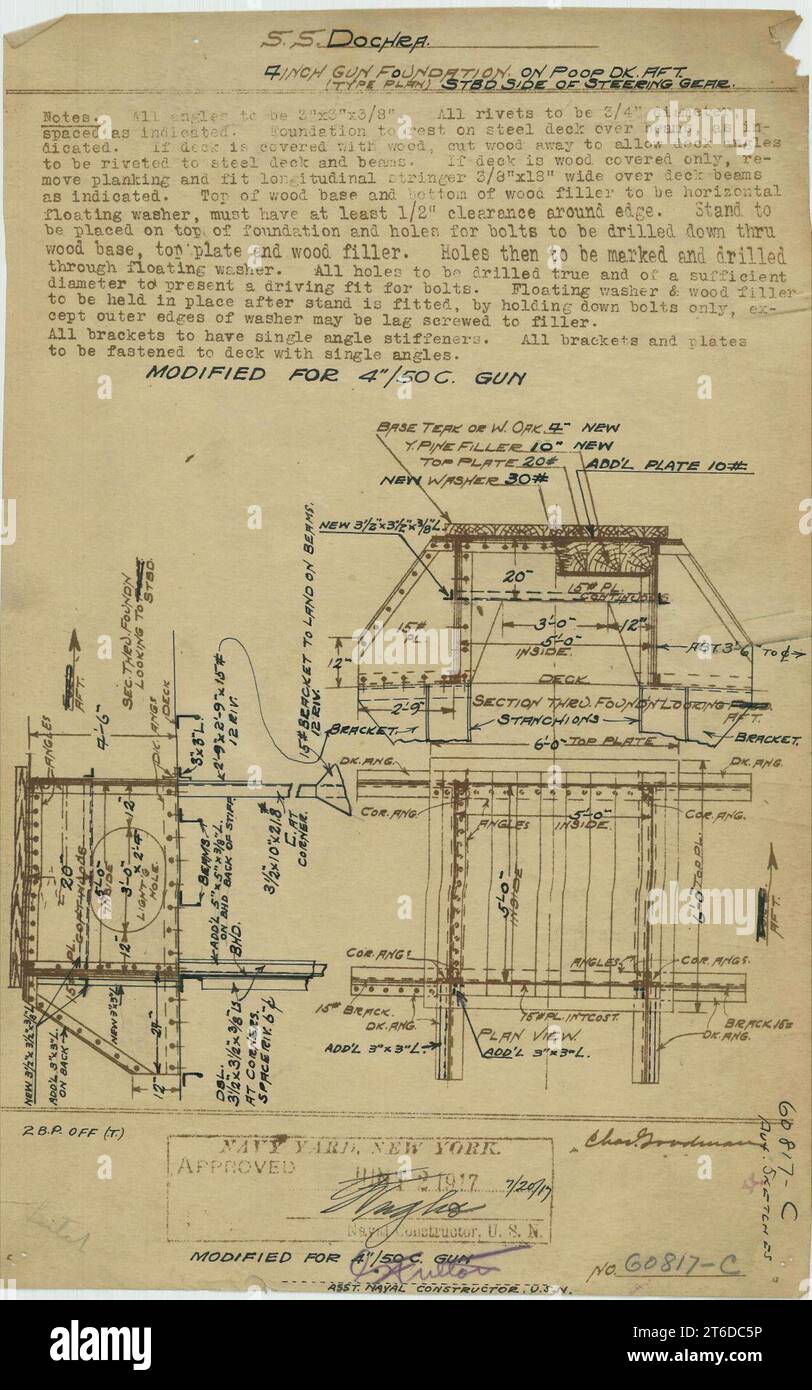 S.S. DOCHRA.
4 INCH GUN FOUNDATION. ON POOP DK. AFT.
(TYPE PLAN) STBD SIDE OF STEERING GEAR.
Notes. All angles to be 3"x3"x3/8" All rivets to be 3/4" diameter
spaced as indicated. Foundation to rest on steel deck over beams, as in-
dicated. If deck is covered with wood, cut wood away to allow deck angles
to be riveted to steel deck and beams. If deck is wood covered only, re-
move planking and fit longitudinal stringer 3/8"x18" wide over deck beams
as indicated. Top of wood base and bottom of wood filler to be horizontal
floating washer, must have at least 1/2" clearance around edge. Stand to
be placed on top of foundation and holes for bolts to be drilled down thru
wood base, top plate and wood filler. Holes then to be marked and drilled
through floating washer. All holes to be drilled true and of a sufficient
diameter to present a driving fit for bolts. Floating washer & wood filler
to be held in place after stand is fitted, by holding down bolts only, ex-
cept outer edges of washer may be lag screwed to filler.
All brackets to have single angle stiffeners. All brackets and plates
to be fastened to deck with single angles.
MODIFIED FOR 4"/50 C. GUN
BASE TEAK OR W. OAK 4" NEW
Y. PINE FILLER 10" NEW
TOP PLATE 20# ADD'L PLATE 10#
NEW WASHER 30#
NEW 3½"x3½"x⅜" L
20"
15# PL. CONTINUOUS
3'-0" 12"
5'-0"
INSIDE.
15# PL.
12"
AFT 3'-6" TO ¢
DECK
2'-9"
SECTION THRU. FOUND'N LOOKING AFT.
STANCHIONS
BRACKET. BRACKET.
6'-0" TOP PLATE
15# BRACKET TO LAND ON BEAMS.
12 RIV.
SEC. THRU. FOUNDN
LOOKING TO STBD.
AFT.
4'-6"
ANGLES
DK. ANGS
DECK
3"x3" L.
x2'-9"x2'-9"x15#
12 RIV.
20"
5'-0"
INSIDE
12"
3'-0"
x 2'-4"
LIGHT'G
HOLE.
12"
BEAMS
ADD'L 5"x5"x⅜" L.
ON BHD BACK OF STIFF.
BHD.
3½"x10"x21.8#
C. AT
CORNER.
NEW 3½x3½x⅜ L
ADD'L 3"x3" L.
ON BACK
NEW 3"x3" L
24"
12"
DBL.
3½"x3½"x⅜" LS
AT CORNERS.
SPACE RIV. 6"¢
DK. ANG. DK. ANG.
COR. ANG. COR. ANG.
ANGLES
5'-0"
INSIDE
5'-0"
INSIDE
6'-0" TOP PL.
AFT.
COR. ANGS ANGLES COR. ANGS.
15# BRACK.
DK. ANG.
15# PL. INTCOST.
BRACK. 15#
DK. ANG.
PLAN VIEW.
ADD'L 3"x3" L. ADD'L 3"x3" L.
2 B.P. OFF (T.)
NAVY YARD, NEW YORK.
APPROVED JUN 2 1917 7/20/17
Naval Constructor, U. S. N.
Chas. Goodman
60817-C
MODIFIED FOR 4"/50 C. GUN
ASST. NAVAL CONSTRUCTOR, U.S.N.
NO. 60817-C
alamy
Image ID: 2T6DC5P
www.alamy.com